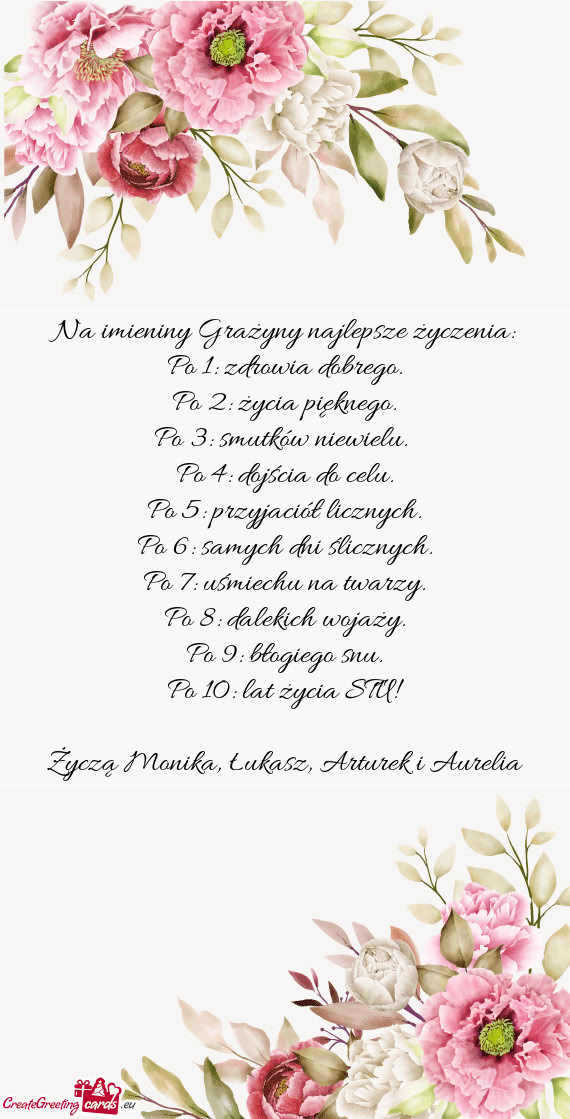 Na imieniny Grażyny najlepsze życzenia:
Po 1: zdrowia dobrego.
Po 2: życia pięknego.
Po 3: smutków niewielu.
Po 4: dojścia do celu.
Po 5: przyjaciół licznych.
Po 6: samych dni ślicznych.
Po 7: uśmiechu na twarzy.
Po 8: dalekich wojaży.
Po 9: błogiego snu.
Po 10: lat życia STU!
Życzą Monika, Łukasz, Arturek i Aurelia
CreateGreeting cards .eu